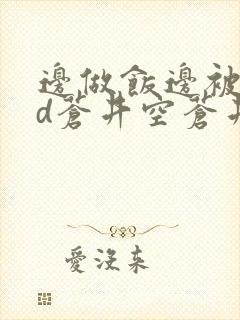 邊做飯邊被
d蒼井空蒼井
愛沒來